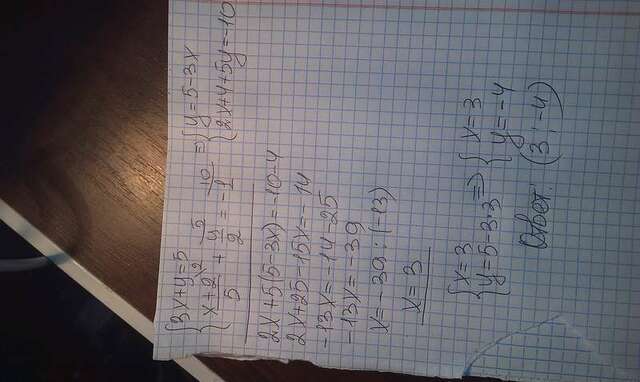 {3x+y=5
{x+2/5 \2 + y/2 \5 = -1 \10 => {y=5-3x
{2x+4+5y=-10
2x+5(5-3x)=-10-4
2x+25-15x=-14
-13x=-14-25
-13x=-39
x=-39:(-13)
x=3
{x=3
{y=5-3·3 => {x=3
{y=-4
Ответ: (3;-4)